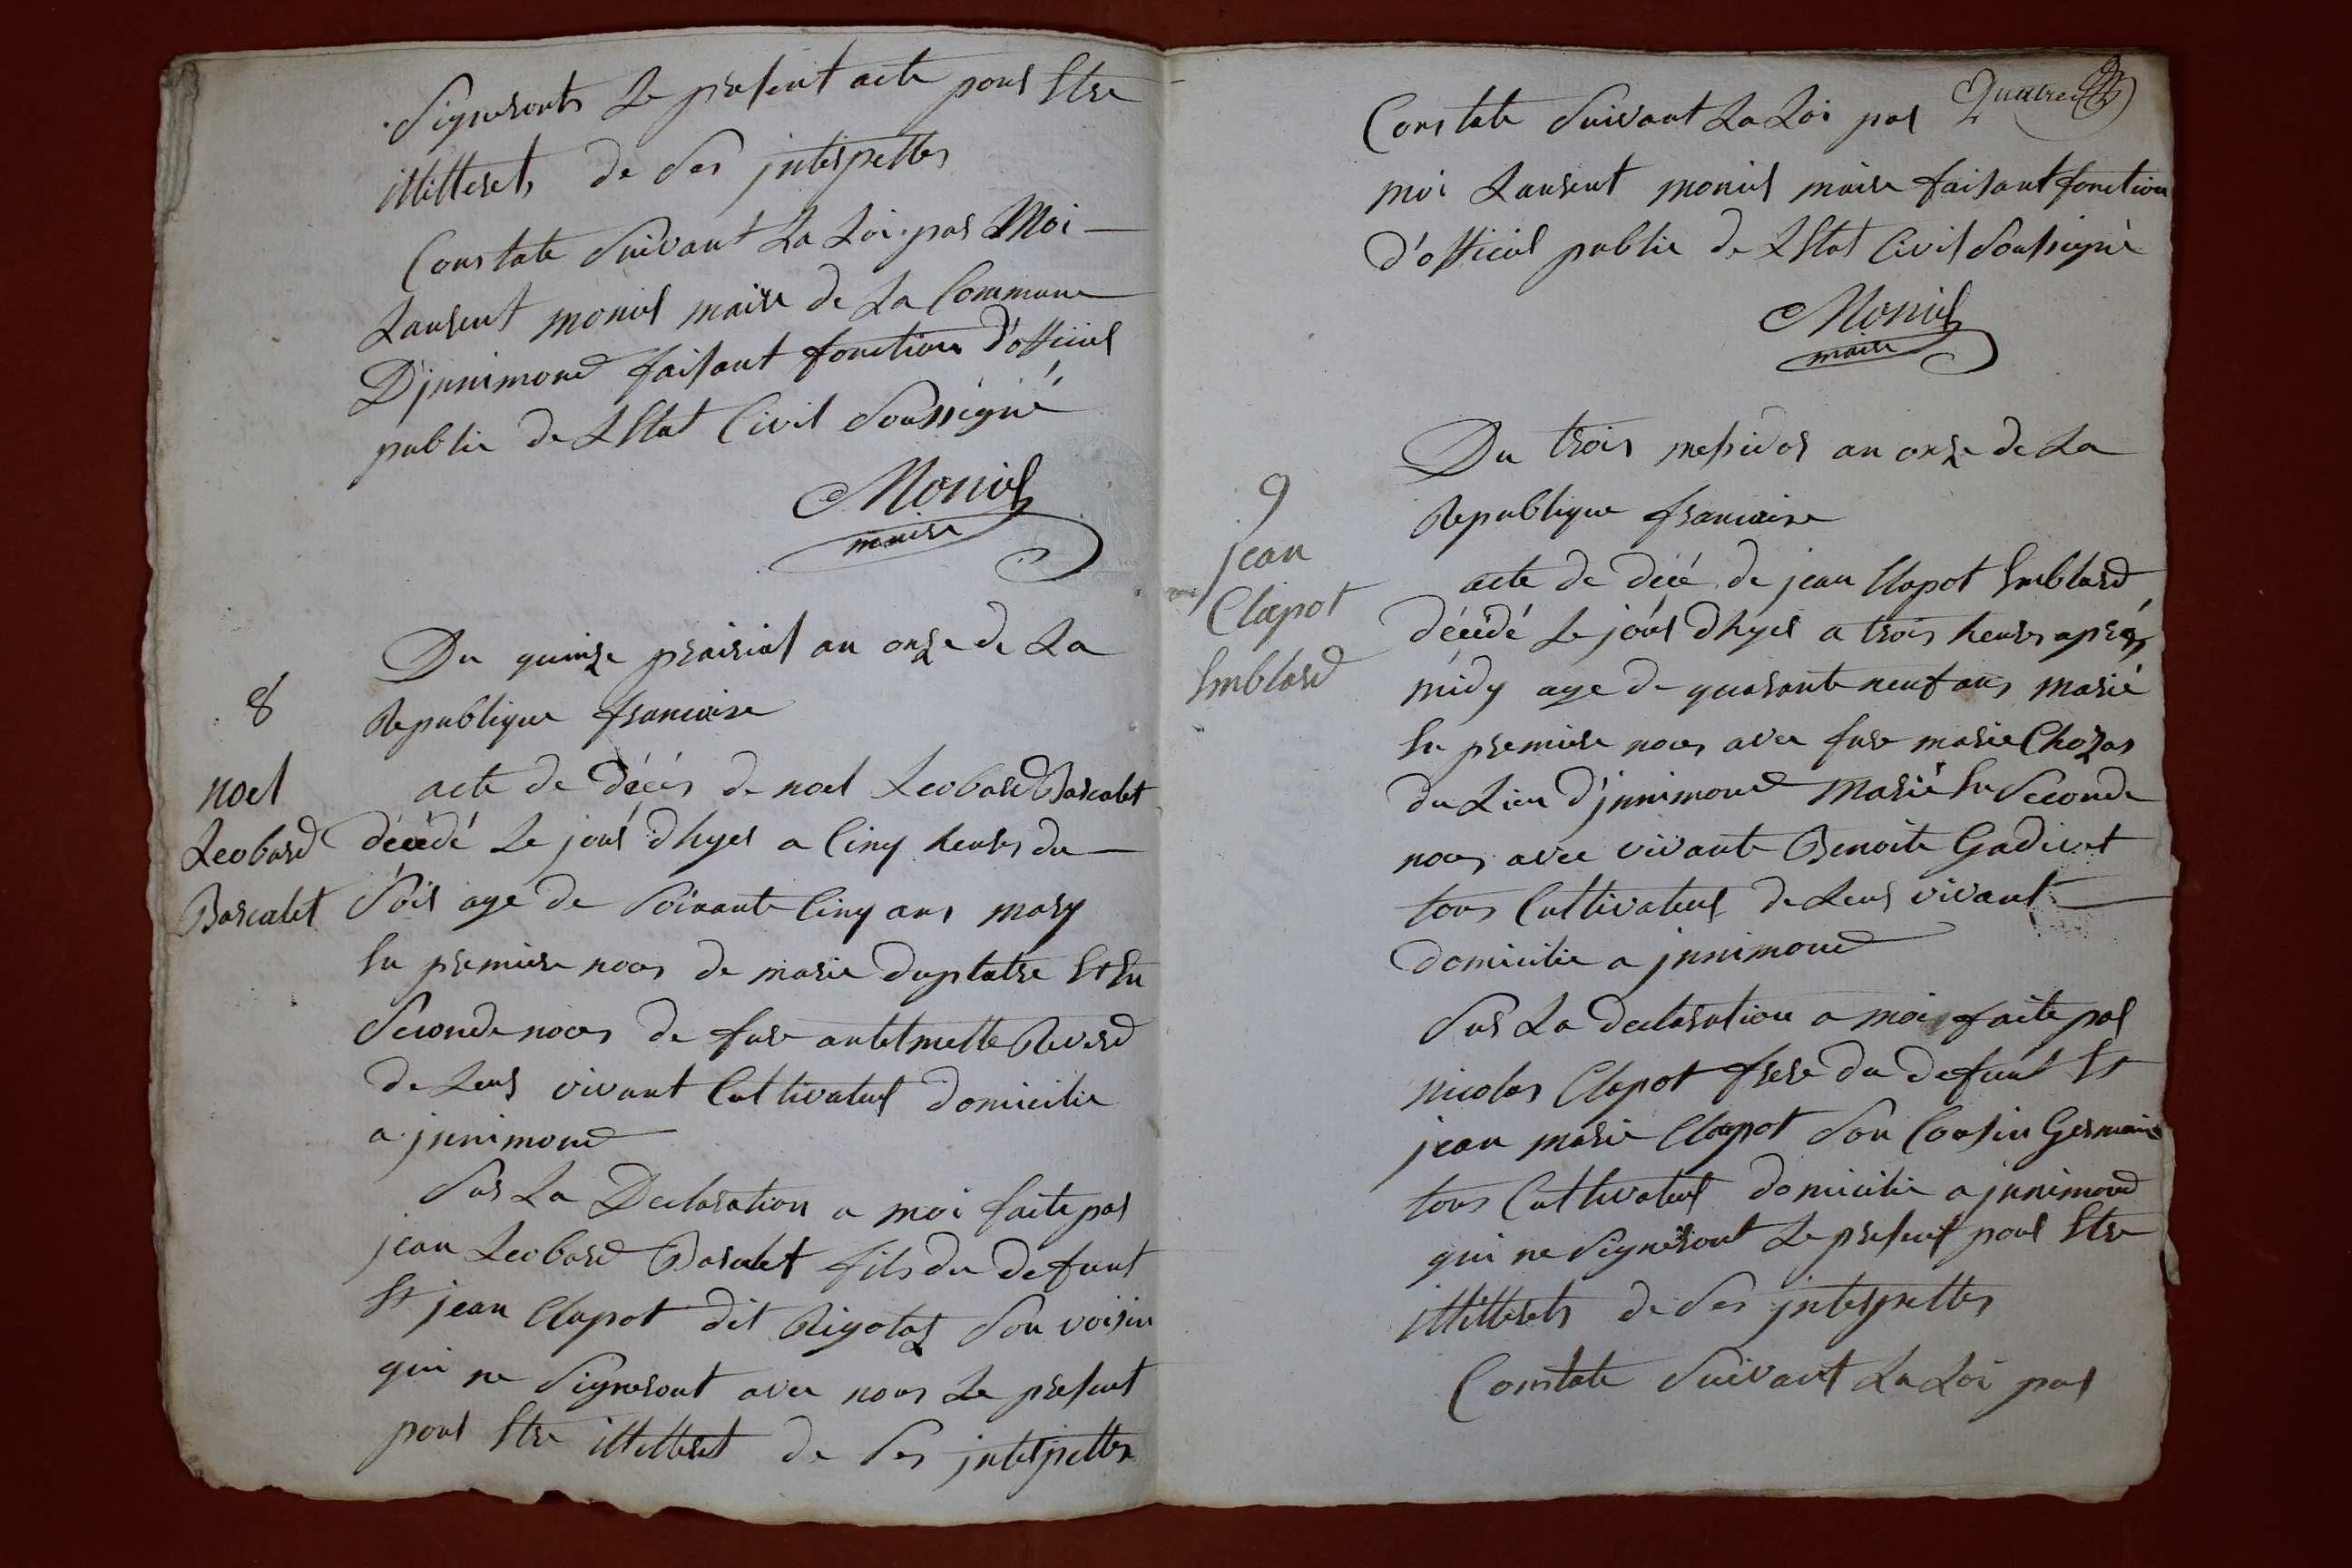 Signeronts Le present acte pour Etre
illitterets de Ses interpelles
Constate Suivant La Loi par Moi
Laurent monier maire de La Commune
D'jnnimond faisant fonction d'officier
public de L Etat Civil Soussigné
Monier
maire
Du quinze prairial an onze de La
Republique francaise
8
noel
Leobard
Barcalet
acte de décés de noel Leobard Barcalet
décédé Le jour d hyer a Cinq heurs du
Soir age de Soixante Cinq ans mary
En premiere noces de marie duplatre Et En
Seconde noces de fue antelmette Reverd
de Leur vivant Cultivateur domicilie
a jnnimond
Sur La Declaration a moi faite par
jean Leobard Barcalet fils du defunt
Et jean Clapot dit Rigolaz Son voisin
qui ne Signeront avec nous Le present
pour Etre illitteret de Ses interpelles
Quatre
Constate Suivant La Loi par
moi Laurent monier maire faisant fonction
d'officier public de L Etat Civil Soussigné
Monier
maire
Du trois messidor an onze de La
Republique francaise
9
jean
Clapot
Emblard
acte de décé de jean Clapot Emblard
décédé Le jour d hyer a trois heurs aprés
midy age de quarante neuf ans marié
En premiere noces avec fue marie Chozas
du Lieu d'jnnimond Marié En Seconde
noces avec vivante Benoite Gadivet
tous Cultivateur de Leur vivant
domicilie a jnnimond
Sur La declaration a moi faite par
nicolas Clapot frere du defunt Et
jean marie Clapot Son Cousin Germain
tous Cultivateur domicilie a jnnimond
qui ne Signeront Le present pour Etre
illitterets de Ses interpelles
Constate Suivant La Loi par